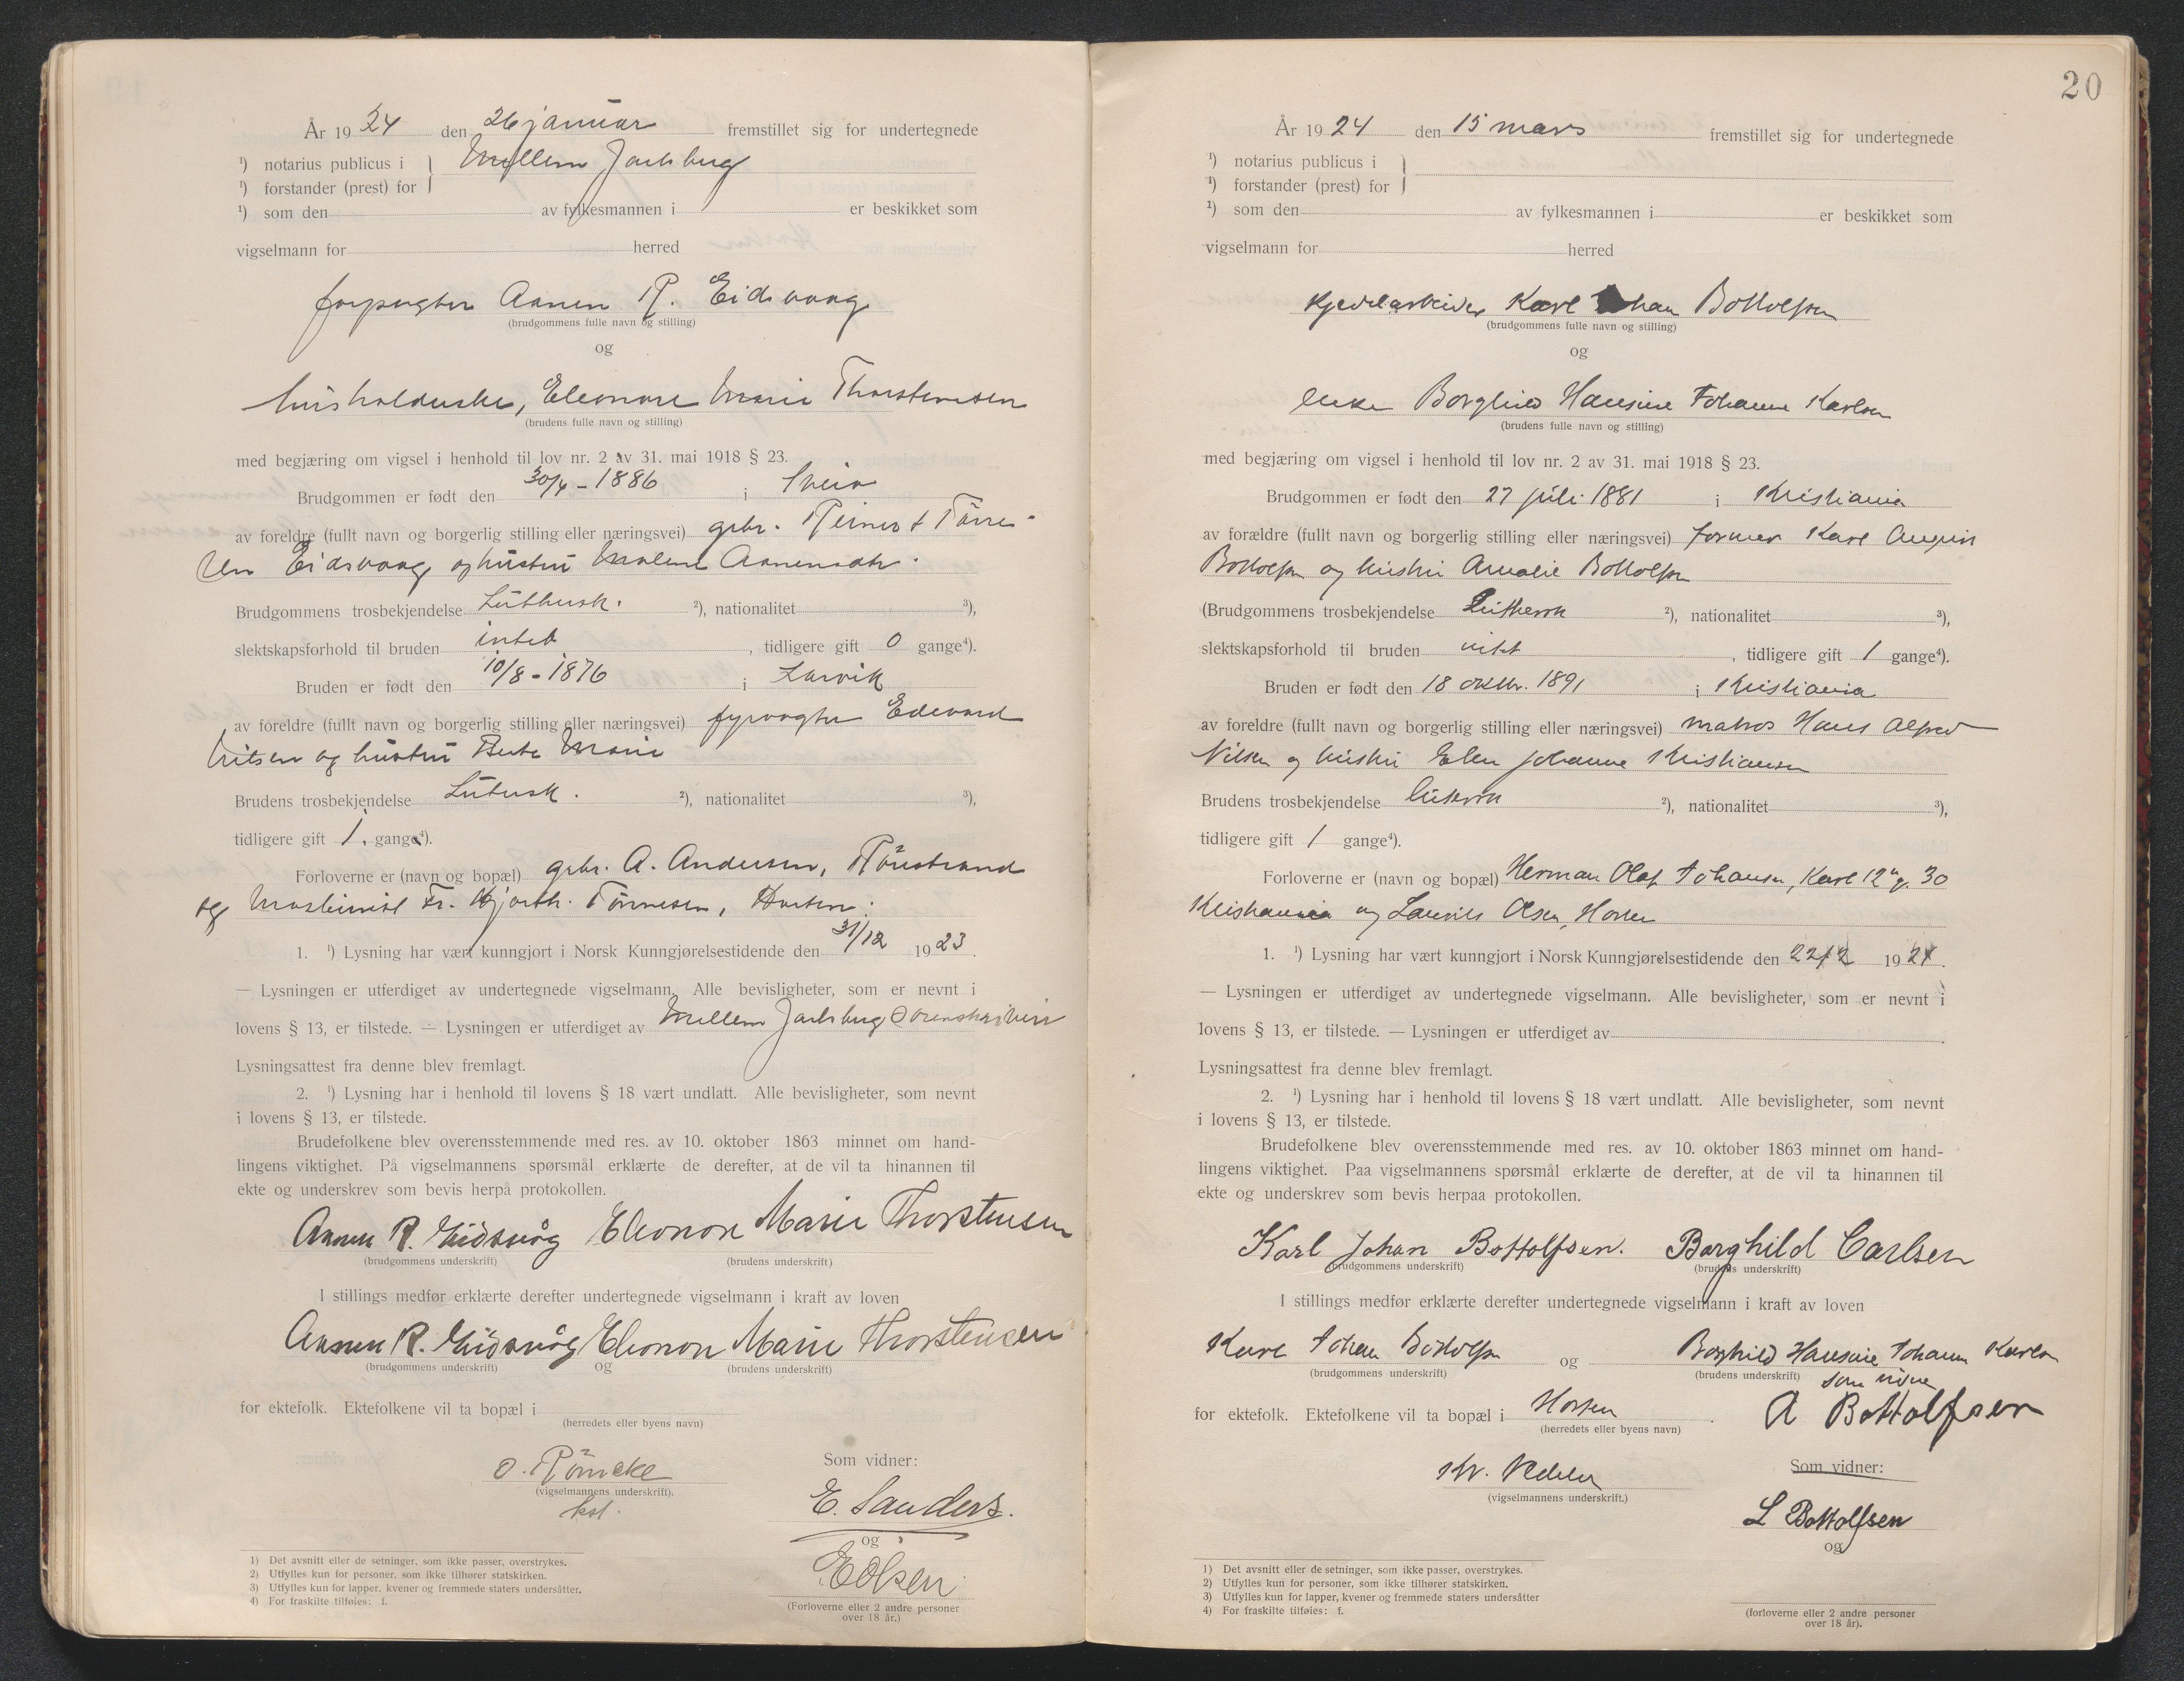 År 19 24 den 26 januar fremstillet sig for undertegnede
¹) notarius publicus i } Mellem Jarlsberg
¹) forstander (prest) for
¹) som den av fylkesmannen i er beskikket som
vigselmann for herred
forpagter Aanen R. Eidsvaag
(brudgommens fulle navn og stilling)
og
husholderske, Eleonore Marie Thorstensen
(brudens fulle navn og stilling)
med begjæring om vigsel i henhold til lov nr. 2 av 31. mai 1918 § 23.
Brudgommen er født den 30/4 - 1886 i
av foreldre (fullt navn og borgerlig stilling eller næringsvei) grbr. Reinert Tönne-
sen Eidsvaag og hustru Malene Aanensdtr.
Brudgommens trosbekjendelse Luthersk. ²), nationalitet ³),
slektskapsforhold til bruden intet , tidligere gift 0 gange⁴).
Bruden er født den 10/8 - 1876 i Larvik
av foreldre (fullt navn og borgerlig stilling eller næringsvei) fyrvogter Edevard
Nilsen og hustru Berte Marie
Brudens trosbekjendelse Lutersk. ²), nationalitet ³),
tidligere gift 1. gange⁴).
Forloverne er (navn og bopæl) grbr. A. Andersen, Rörestrand
og Maskinist Fr. Hjorth. Tönnesen, Horten.
1. ¹) Lysning har vært kunngjort i Norsk Kunngjørelsestidende den 31/12 19 23.
— Lysningen er utferdiget av undertegnede vigselmann. Alle bevisligheter, som er nevnt i
lovens § 13, er tilstede. — Lysningen er utferdiget av Mellem Jarlsberg Sorenskriveri
Lysningsattest fra denne blev fremlagt.
2. ¹) Lysning har i henhold til lovens § 18 vært undlatt. Alle bevisligheter, som nevnt
i lovens § 13, er tilstede.
Brudefolkene blev overensstemmende med res. av 10. oktober 1863 minnet om hand-
lingens viktighet. På vigselmannens spørsmål erklærte de derefter, at de vil ta hinannen til
ekte og underskrev som bevis herpå protokollen.
Aanen R. Eidsvåg Eleonore Marie Thorstensen
(brudgommens underskrift) (brudens underskrift)
I stillings medfør erklærte derefter undertegnede vigselmann i kraft av loven
Aanen R. Eidsvåg Eleonore Marie Thorstensen
(brudgommens underskrift) og (brudens underskrift)
for ektefolk. Ektefolkene vil ta bopæl i
(herredets eller byens navn)
O. Römcke
(vigselmannens underskrift).
kst.
Som vidner:
E. Sanders.
og
E Olsen
(Forloverne eller 2 andre personer
over 18 år.)
1) Det avsnitt eller de setninger, som ikke passer, overstrykes.
2) Utfylles kun for personer, som ikke tilhører statskirken.
3) Utfylles kun for lapper, kvener og fremmede staters undersåtter.
4) For fraskilte tilføies: f.
20
År 19 24 den 15 mars fremstillet sig for undertegnede
¹) notarius publicus i }
¹) forstander (prest) for
¹) som den av fylkesmannen i er beskikket som
vigselmann for herred
kjedelarbeider Karl Johan Bottolfsen
(brudgommens fulle navn og stilling)
og
enke Borghild Hansine Johanne Karlsen
(brudens fulle navn og stilling)
med begjæring om vigsel i henhold til lov nr. 2 av 31. mai 1918 § 23.
Brudgommen er født den 27 juli 1881 i Kristiania
av forældre (fullt navn og borgerlig stilling eller næringsvei) former Karl August
Bottolfsen og hustru Amalie Bottolfsen
(Brudgommens trosbekjendelse Luthersk ²), nationalitet ³),
slektskapsforhold til bruden intet , tidligere gift 1 gange⁴).
Bruden er født den 18 oktbr. 1891 i Kristiania
av foreldre (fullt navn og borgerlig stilling eller næringsvei) matros Hans Alfred
Nilsen og hustru Elen Johanne Kristiansen
Brudens trosbekjendelse lutersk ²), nationalitet ³),
tidligere gift 1 gange⁴).
Forloverne er (navn og bopæl) Herman Olaf Johansen, Karl 12 g. 30
Kristiania og Laurits Olsen, Horten
1. ¹) Lysning har vært kunngjort i Norsk Kunngjørelsestidende den 22/2 19 24.
— Lysningen er utferdiget av undertegnede vigselmann. Alle bevisligheter, som er nevnt i
lovens § 13, er tilstede. — Lysningen er utferdiget av
Lysningsattest fra denne blev fremlagt.
2. ¹) Lysning har i henhold til lovens § 18 vært undlatt. Alle bevisligheter, som nevnt
i lovens § 13, er tilstede.
Brudefolkene blev overensstemmende med res. av 10. oktober 1863 minnet om hand-
lingens viktighet. Paa vigselmannens spørsmål erklærte de derefter, at de vil ta hinannen til
ekte og underskrev som bevis herpaa protokollen.
Karl Johan Bottolfsen. Borghild Carlsen
(brudgommens underskrift) (brudens underskrift)
I stillings medfør erklærte derefter undertegnede vigselmann i kraft av loven
Karl Johan Bottolfsen og Borghild Hansine Johanne Karlsen
(brudgommens underskrift) (brudens underskrift)
som vidne
for ektefolk. Ektefolkene vil ta bopæl i Horten. A Bottolfsen
(herredets eller byens navn)
(vigselmannens underskrift.)
Som vidner:
L Bottolfsen
og
(forloverne eller 2 andre personer
over 18 år).
1) Det avsnitt eller de setninger, som ikke passer, overstrykes.
2) Utfylles kun for personer, som ikke tilhører statskirken.
3) Utfylles kun for lapper, kvener og fremmede staters undersåtter
4) For fraskilte tilføies: f.